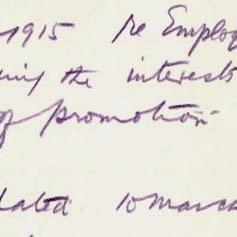 1915 re Employ
ing the interests
of promotion
dated 10 March